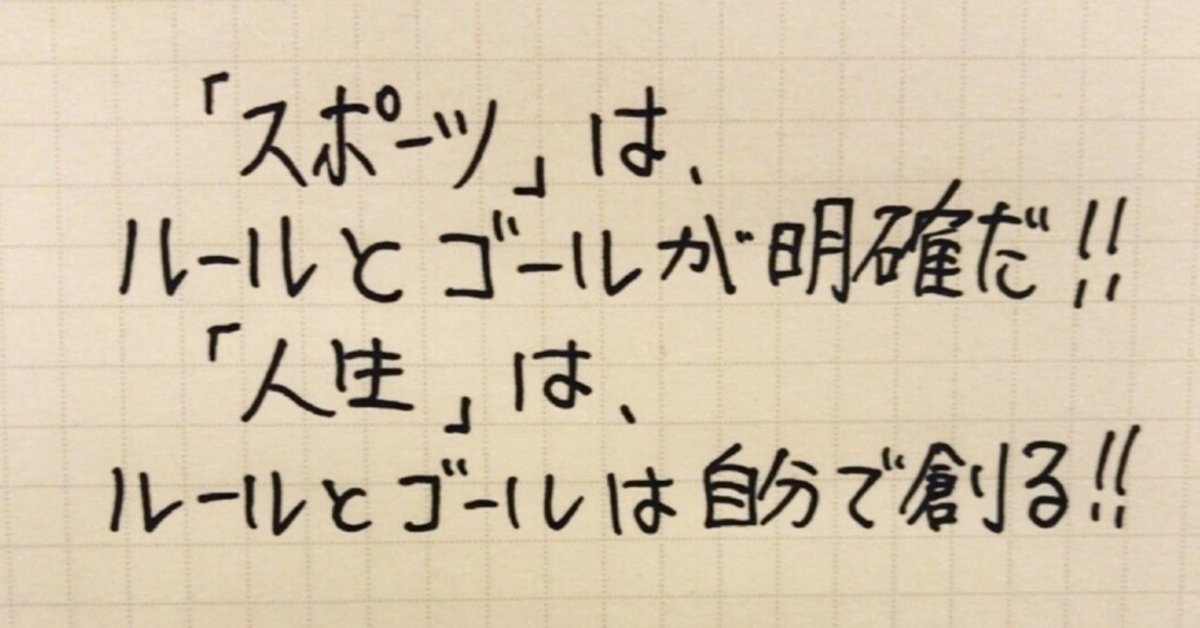 「スポーツ」は、
ルールとゴールが明確だ!!
「人生」は、
ルールとゴールは自分で創る!!